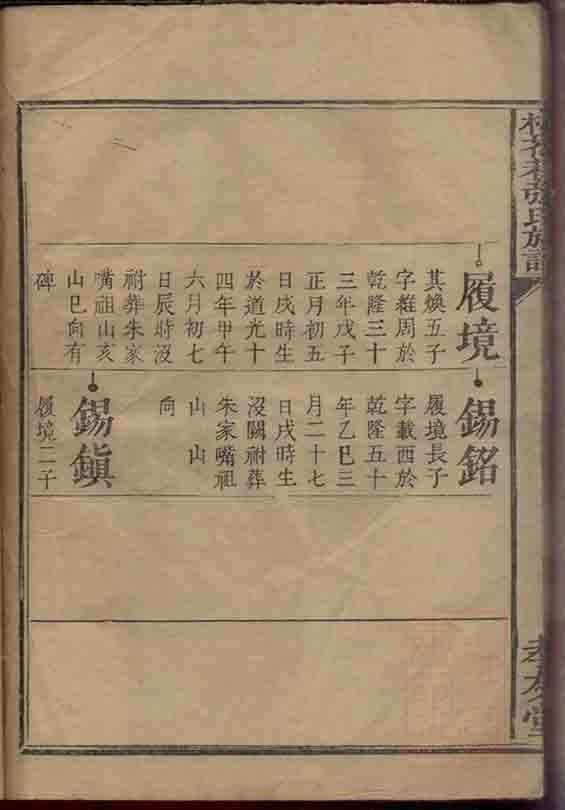 氏族譜
孝友堂
履境
其煥五子
字維周於
乾隆三十
三年戊子
正月初五
日戌時生
於道光十
四年甲午
六月初七
日辰時沒
祔葬朱家
嘴祖山亥
山巳向有
碑
錫銘
履境長子
字載西於
乾隆五十
年乙巳三
月二十七
日戌時生
沒闕祔葬
朱家嘴祖
山 山
向
錫鎮
履境二子